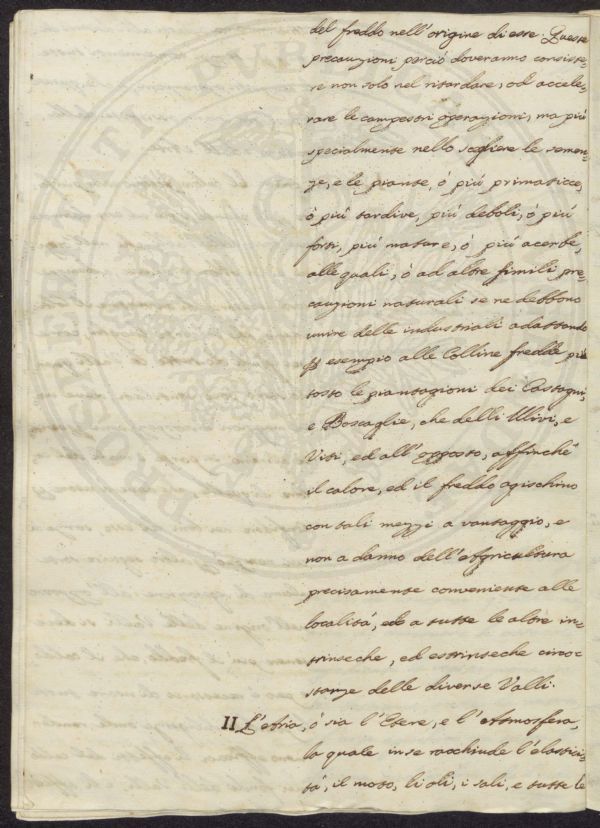 del freddo nell'origine di esse. Queste
precauzioni perciò doveranno consiste=
re non solo nel ritardare, od accele=
rare le campestri operazioni, ma più
specialmente nello scegliere le semen=
ze, e le piante, ò più primaticce,
ò più tardive, più deboli, ò più
forti, più mature, ò più acerbe,
alle quali, ò ad altre simili pre=
cauzioni naturali se ne debbono
unire delle industriali adattando
esempio alle Colline fredde più
tosto le piantagioni dei Castagni,
e Boscaglie, che delli Ulivi, e
Viti, ed all'opposto, affinché
il calore, ed il freddo agischino
con tali mezzi a vantaggio, e
non a danno dell'Agricultura
precisamente conveniente alle
località, ed a tutte le altre in=
trinseche, ed estrinseche circo=
stanze delle diverse Valli.
II L'Aria, ò sia l'Etere, e l'Atmosfera,
la quale in se racchiude l'elastici=
tà, il moto, li oli, i sali, e tutte le